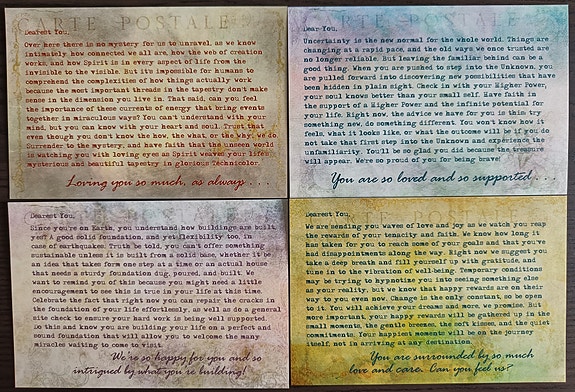 CARTE POSTALE
Dearest You,
Over here there is no mystery for us to unravel, as we know
intimately how connected we all are, how the web of creation
works, and how Spirit is in every aspect of life from the
invisible to the visible. But it's impossible for humans to
comprehend the complexities of how things actually work
because the most important threads in the tapestry don't make
sense in the dimension you live in. That said, can you feel
the importance of these currents of energy that bring events
together in miraculous ways? You can't understand with your
mind, but you can know with your heart and soul. Trust that
even though you don't know the how, the what, or the why, we do.
Surrender to the mystery, and have faith that the unseen world
is watching you with loving eyes as Spirit weaves your life's
mysterious and beautiful tapestry in glorious Technicolor.
Loving you so much, as always . . .
CARTE POSTALE
Dear You,
Uncertainty is the new normal for the whole world. Things are
changing at a rapid pace, and the old ways we once trusted are
no longer reliable. But leaving the familiar behind can be a
good thing. When you are pushed to step into the Unknown, you
are pulled forward into discovering new possibilities that have
been hidden in plain sight. Check in with your Higher Power,
your soul knows better than your small self. Have faith in
the support of a Higher Power and the infinite potential for
your life. Right now, the advice we have for you is this: try
something new, do something different. You won't know how it
feels, what it looks like, or what the outcome will be if you do
not take that first step into the Unknown and experience the
unfamiliarity. You'll be so glad you did because the treasure
will appear. We're so proud of you for being brave!
You are so loved and so supported . . .
Dearest You,
Since you're on Earth, you understand how buildings are built,
yes? A good solid foundation, and yet flexibility too, in
case of earthquakes. Truth be told, you can't offer something
sustainable unless it is built from a solid base, whether it be
an idea that takes form one step at a time or an actual house
that needs a sturdy foundation dug, poured, and built. We
want to remind you of this because you might need a little
encouragement to see this is true in your life at this time.
Celebrate the fact that right now you can repair the cracks in
the foundation of your life effortlessly, as well as do a general
site check to ensure your hard work is being well supported.
Do this and know you are building your life on a perfect and
sound foundation that will allow you to welcome the many
miracles waiting to come to visit.
We're so happy for you and so
intrigued by what you're building!
Dearest You,
We are sending you waves of love and joy as we watch you reap
the rewards of your tenacity and faith. We know how long it
has taken for you to reach some of your goals and that you've
had disappointments along the way. Right now we suggest you
take a deep breath and fill yourself up with gratitude, and
tune in to the vibration of well-being. Temporary conditions
may be trying to hypnotize you into seeing something else
as your reality, but we know that happy rewards are on their
way to you even now. Change is the only constant, so be open
to it. You will achieve your dreams and more, we promise. But
more important, your happy rewards will be gathered up in the
small moments, the gentle breezes, the soft kisses, and the quiet
commitments. Your happiest moments will be on the journey
itself, not in arriving at any destination.
You are surrounded by so much
love and care. Can you feel us?